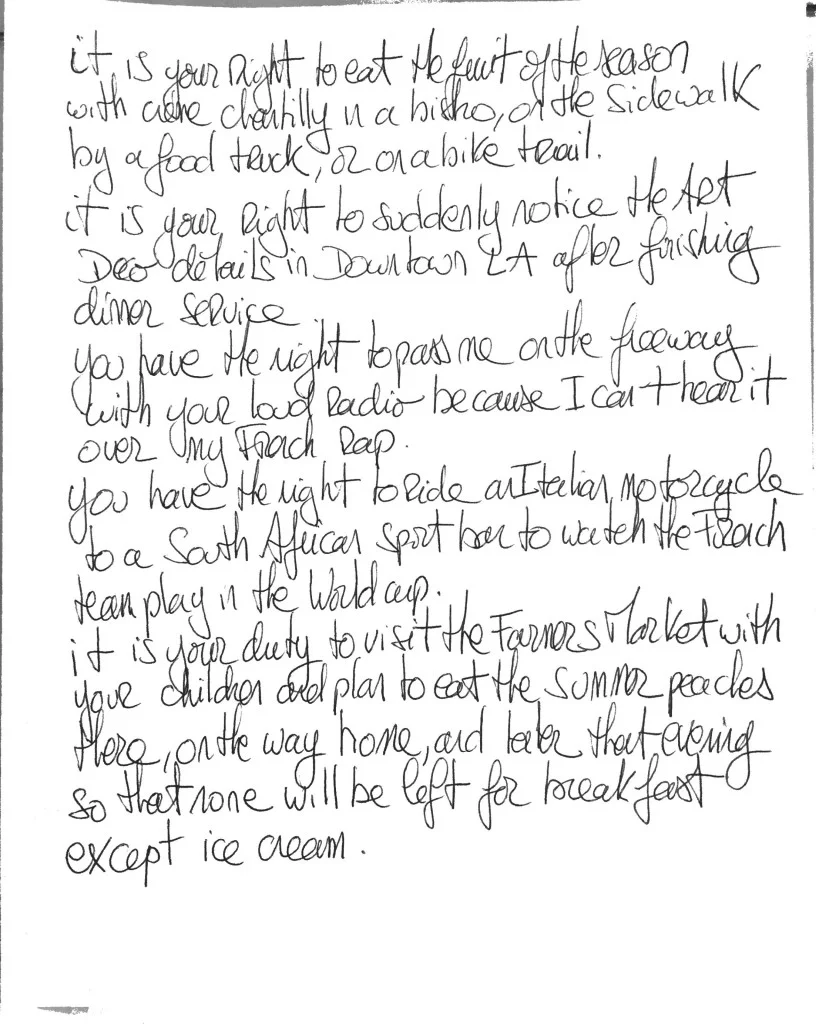 it is your right to eat the fruit of the season
with crème chantilly in a bistro, on the sidewalk
by a food truck, or on a bike trail.
it is your right to suddenly notice the Art
Deco details in Downtown LA after finishing
dinner service.
you have the right to pass me on the freeway
with your loud radio because I can't hear it
over my French Rap.
you have the right to ride an Italian motorcycle
to a South African sport bar to watch the French
team play in the World cup.
it is your duty to visit the Farmers Market with
your children and plan to eat the summer peaches
there, on the way home, and later that evening
so that none will be left for breakfast
except ice cream.